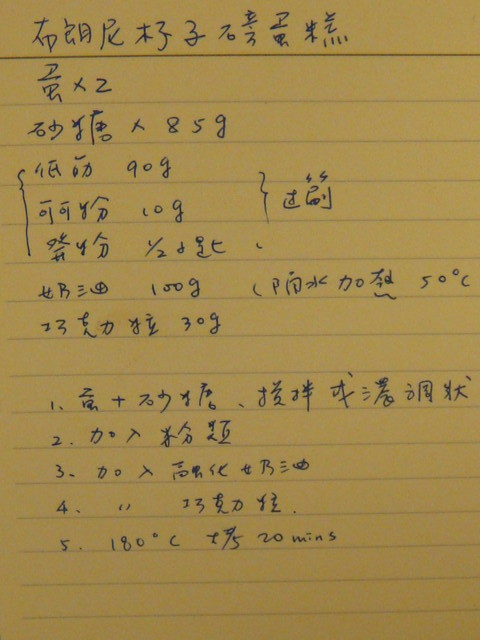 布朗尼杯子磅蛋糕
蛋×2
砂糖×85g
低筋 90g
可可粉 10g 过刷
發粉 1/2小匙
奶油 100g (隔水加热 50°C
巧克力粒 30g
1. 蛋+砂糖、搅拌成濃稠状
2. 加入粉類
3. 加入融化奶油
4. 〃 巧克力粒.
5. 180°C 烤20mins